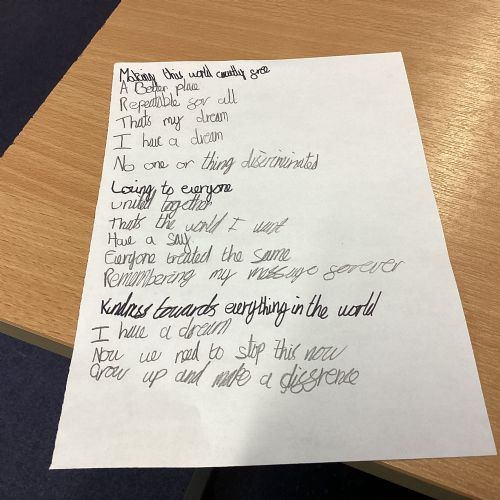 Making this world cruelty free
A Better place
Repeatable for all
Thats my dream
I have a dream
No one or thing discriminated
Loving to everyone
United together
Thats the world I want
Have a say
Everyone treated the same
Remembering my message forever
Kindness towards everything in the world
I have a dream
Now we need to stop this now
Grow up and make a diffrence